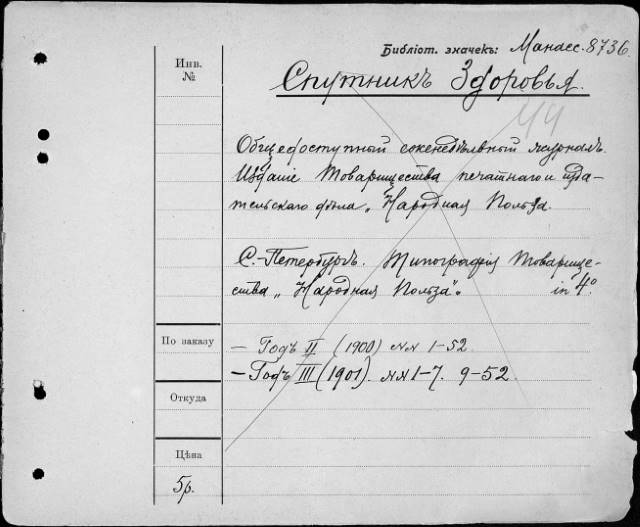 Библіот. значекъ: Манасс. 8736.
Инв.
№
Спутникъ Здоровья.
44
Общедоступный еженедѣльный журналъ.
Изданіе Товарищества печатнаго и изда-
тельскаго дѣла „Народная Польза.
С.-Петербургъ. Типографія Товарище-
ства „Народная Польза“. in 4º.
По заказу
— Годъ II (1900) №№ 1-52.
— Годъ III (1901). №№ 1-7. 9-52.
Откуда
Цѣна
5р.